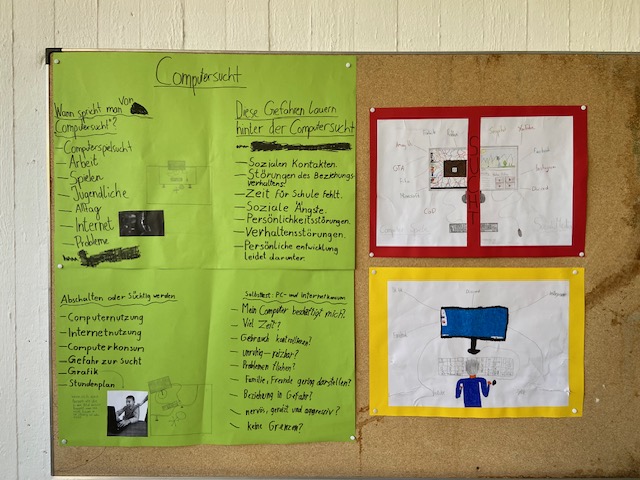 Computersucht
Wann spricht man von
"Computersucht"?
– Computerspielsucht
– Arbeit
– Spielen
– Jugendliche
– Alltag
– Internet
– Probleme
Diese Gefahren lauern
hinter der Computersucht
– Sozialen Kontakten.
– Störungen des Beziehungs
verhaltens!
– Zeit für Schule fehlt.
– Soziale Ängste.
– Persönlichkeitsstörungen.
– Verhaltensstörungen.
– Persönliche entwicklung
leidet darunter.
Abschalten oder Süchtig werden
– Computernutzung
– Internetnutzung
– Computerkonsum
– Gefahr zur Sucht
– Grafik
– Stundenplan
Selbsttest: PC- und Internetkonsum
– Mein Computer beschäftigt mich?
– Viel Zeit?
– Gebrauch kontrollieren?
– unruhig - reizbar?
– Problemen fliehen?
– Familie, Freunde gering darstellen?
– Beziehung in Gefahr?
– nervös, gereizt und aggressiv?
– keine Grenzen?
GTA
SUCHT